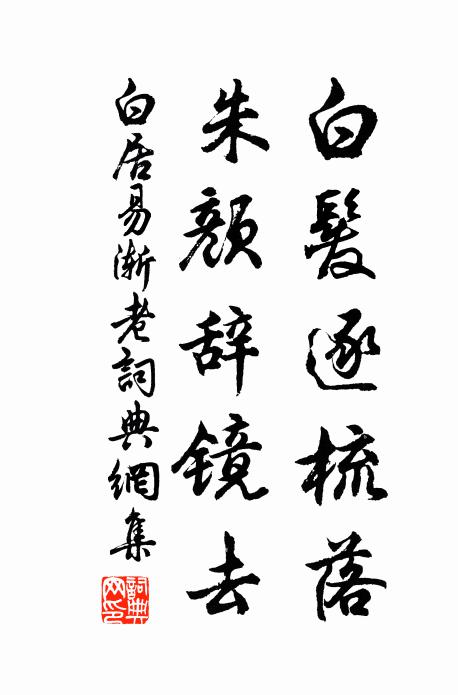 白髮逐梳落
朱顔辞镜去
白居易渐老詞典網集
詞典网印